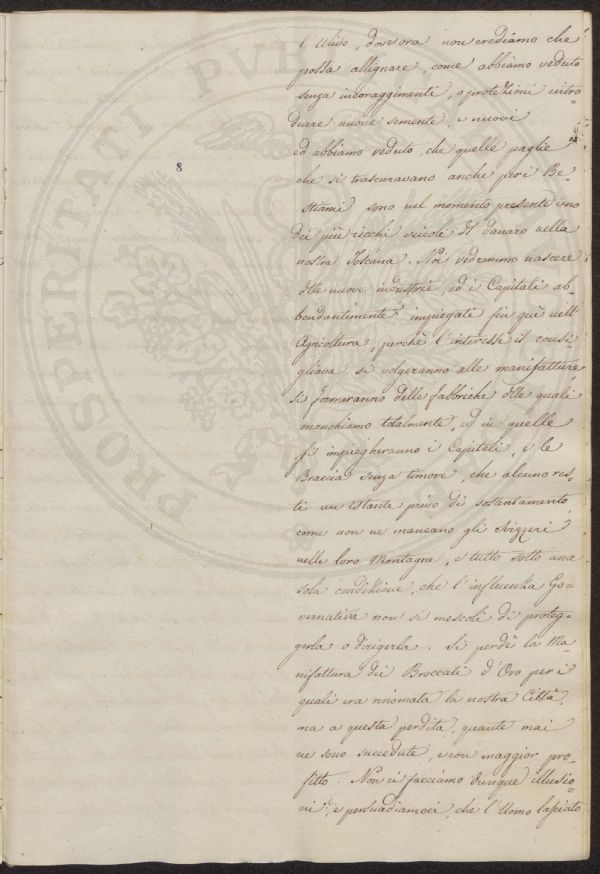 l'Ulivo, dove ora non crediamo che
possa allignare, come abbiamo veduto
senza incoraggimenti, o protezioni intro=
durre nuove semente, e nuovi
ed abbiamo veduto, che quelle paglie
che si trascuravano anche per i Be=
stiami sono nel momento presente uno
dei più ricchi veicoli di danaro nella
nostra Toscana. Noi vedremmo nascere
delle nuove industrie, ed i Capitali ab=
bondantimente impiegati fin quì nell'
Agricoltura, perchè l'interesse il consi=
gliava si volgeranno alle manifatture,
si formeranno delle fabbriche delle quali
manchiamo totalmente, ed in quelle
si impiegheranno i Capitali, e le
Braccia senza timore, che alcuno res=
ti un istante privo di sostentamento,
come non ne mancano gli Svizzeri
nelle loro Montagne, e tutto sotto una
sola condizione, che l'influenza Go=
vernativa non si mescoli di proteg=
gerla o dirigerla. Si perdè la Ma=
nifattura dei Broccati d'Oro per i
quali era rinomata la nostra Città,
ma a questa perdita, quante mai
ne sono succedute, e con maggior pro=
fitto. Non ci facciamo dunque illusio=
ni, e persuadiamoci, che l'Uomo lasciato
8
PROSPERITATI PVBLI